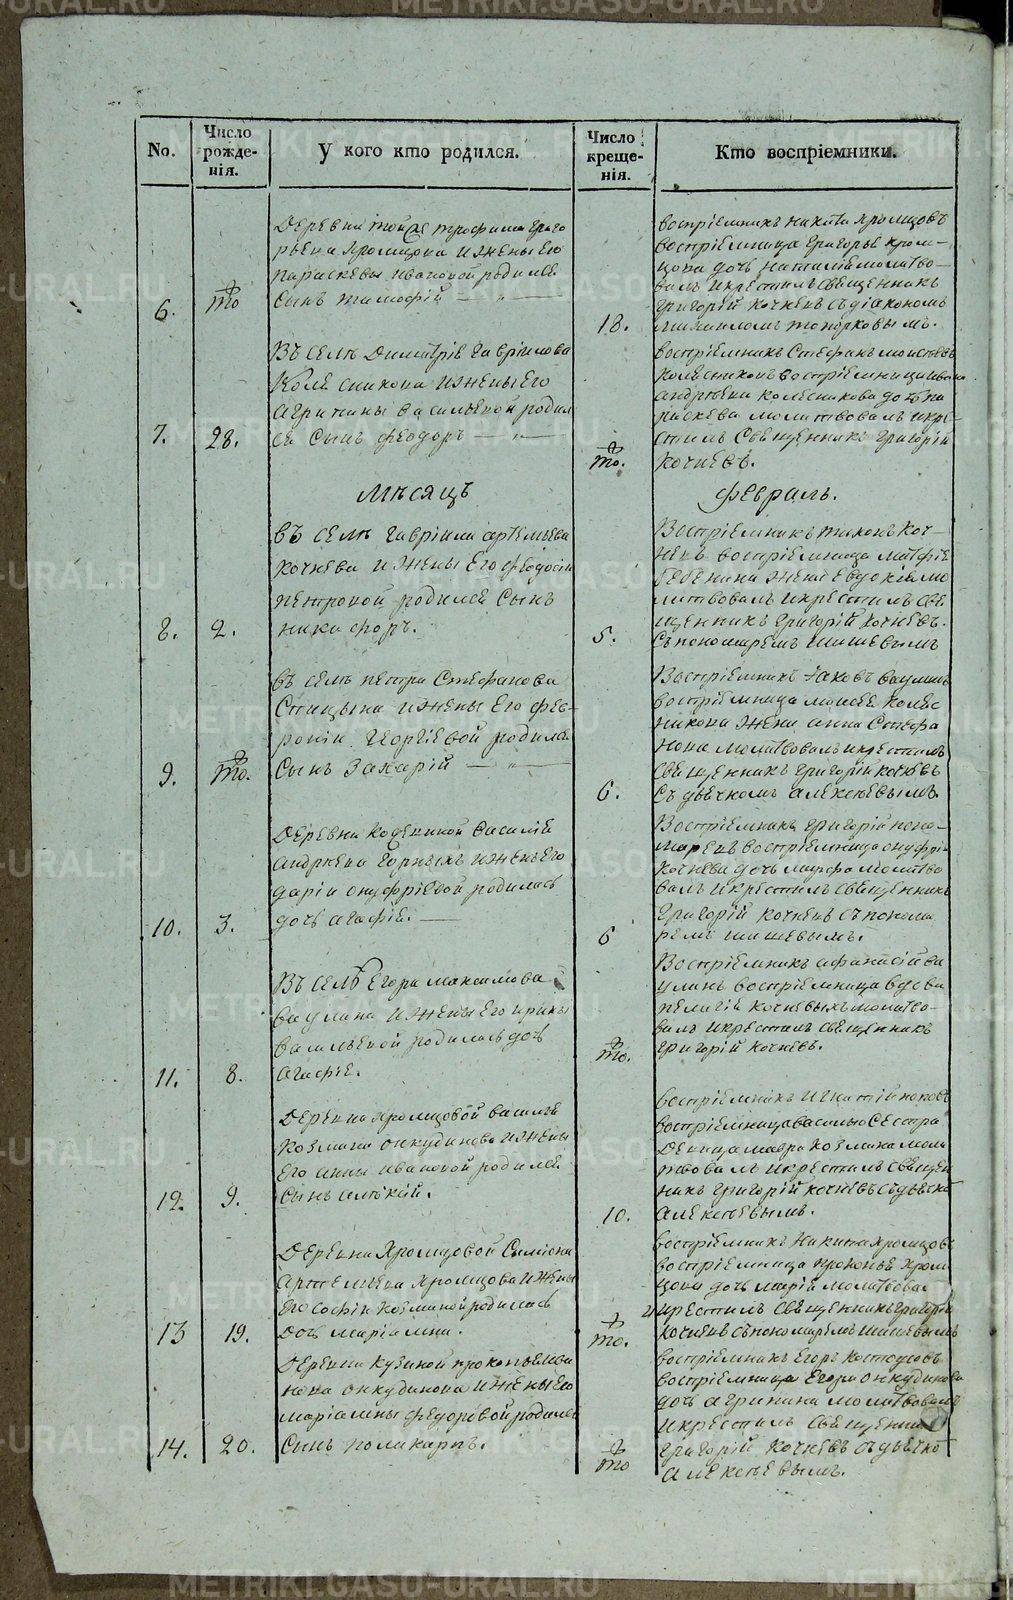 No.
Число рожде-
нія.
У кого кто родился.
Число креще-
нія.
Кто воспріемники.
Деревни той же Трофима Григо
рьева Хромцова и жены Его
Параскевы Ивановой родился
6. то сынъ Тимофій
воспріемникъ Никита Хромцовъ
воспріемница Григорья Хром-
цова дочь Наталія молитво-
валъ и крестилъ священникъ
Григорій Кочневъ съ діакономъ
18. Михаиломъ Топорковымъ.
Въ селѣ Димитрія Гаврилова
Колесникова и жены Его
Агрипины Васильевой родил
7. 28. ся сынъ Феодоръ
воспріемникъ Стефанъ Моисѣевъ
Колесниковъ воспріемница Ивана
Андрѣева Колесникова дочь Па
раскева молитвовалъ и кре-
стилъ Священникъ Григорій
то. Кочневъ.
Мѣсяцъ
Февраль.
въ селѣ Гавріила Артемьева
Кочнева и жены Его Феодосіи
Петровой родился Сынъ
8. 2. Никифоръ.
Воспріемникъ Тихонъ Коч-
невъ воспріемница Матфея
Бебенина жена Евдокія мо
литвовалъ и крестилъ Свя
щенникъ Григорій Кочневъ.
5. Съ пономаремъ Шишевымъ
въ селѣ Петра Стефанова
Спицына и жены Его Фев-
роніи Георгіевой родился
9. то. Сынъ Захарій
Воспріемникъ Іаковъ Ваулинъ
воспріемница Моисея Колес
никова жена Анна Стефа
нова молитвовалъ и крестилъ
священникъ Григорій Кочневъ
6. Съ дьячкомъ Алексѣевымъ.
Деревни Кодениной Василія
Андрѣева Горныхъ и жены Его
Даріи Онуфріевой родилась
10. 3. дочь Агафія.
Воспріемникъ Григорій Поно-
маревъ воспріемница Онуфрія
Кочнева дочь Марфа молитво
валъ и крестилъ священникъ
Григорій Кочневъ съ понома
6 ремъ Шишевымъ.
Въ селѣ Егора Максимова
Ваулина и жены Его Ирины
Васильевой родилась дочь
11. 8. Агафія.
Воспріемникъ Афанасій Ва
улинъ воспріемница вдова
Пелагія Кочневыхъ молитво-
валъ и крестилъ священникъ
то. Григорій Кочневъ.
Деревни Хромцовой Василья
Козмина Онкудинова и жены
Его Анны Ивановой родился
12. 9. Сынъ Алѣксій.
воспріемникъ Игнатій Поповъ
воспріемница Василью Сестра
девица Мавра Козмина моли
твовалъ и крестилъ священ
никъ Григорій Кочневъ съ дьячко
10. Алексѣевымъ.
Деревни Хромцовой Симіона
Артемьева Хромцова и жены
Его Софіи Козминой родилась
13 19. Дочь Маріамна.
воспріемникъ Никита Хромцовъ
воспріемница Прокопья Хром
цова дочь Марія молитвовал
и крестилъ священникъ Григорій
то. Кочневъ съ пономаремъ Шишевымъ
Деревни Кузиной Прокопья Ива
нова Онкудинова и жены Его
Маріамны Федоровой родился
14. 20. Сынъ Поликарпъ.
воспріемникъ Егоръ Костоусовъ
воспріемница Егора Онкудинова
дочь Агрипина молитвовалъ
и крестилъ священникъ
Григорій Кочневъ съ дьячко
то Алексѣевымъ.
METRIKI.GASO-URAL.RU